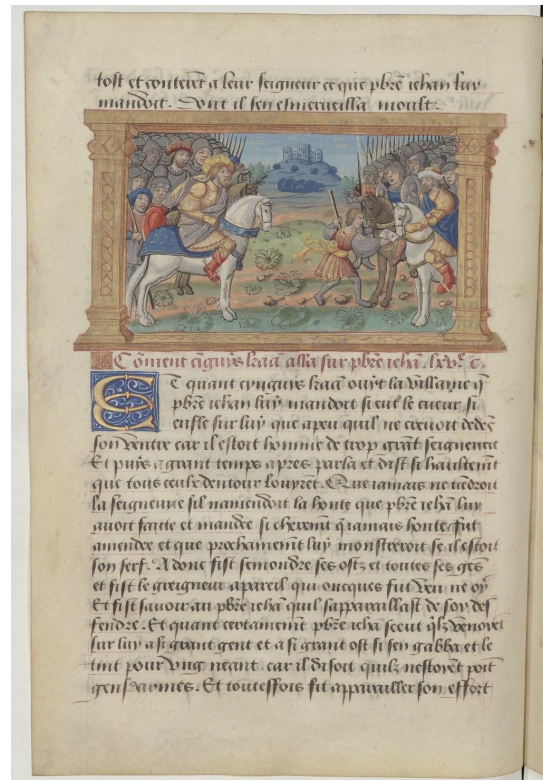 tost et conterēt a leur seigneur ce que pbrē iehan luy
mandoit. Dont il sen esmerveilla moult.
Cōment cīguys kaā alla sur pbrē iehā. lxvie. c.
ET quant cynguys kaā ouyt la villayne q̄
pbrē iehan luy mandoit si eut le cueur si
enfle sur luy que a peu quil ne crevoit dedēs
son ventre car il estoit homme de trop grāt seigneurie
Et puys a grant temps apres parla et dist si haultemēt
que tous ceulx dentour louyret. Que iamais ne tiēdroit
la seigneurie sil namendoit la honte que pbrē iehan luy
avoit faicte et mandee si cherement q̄ iamais honte fut
amendee et que prochainemēt luy monstreroit se il estoit
son serf. Adonc fist semondre ses ostz et toutes ses gēs
et fist le greigneur apareil qui oncques fut veu ne oy
Et fist savoir au pbrē iehā quil sapparaillast de soy des
fendre. Et quant certainemēt pbrē iehā sceut q̄lz venoyēt
sur luy a si grant gent et a si grant ost si sen gabba et le
tint pour vng neant. car il disoit quilz nestoyēt poīt
gens darmes. Et touteffois fit apparailler son effort